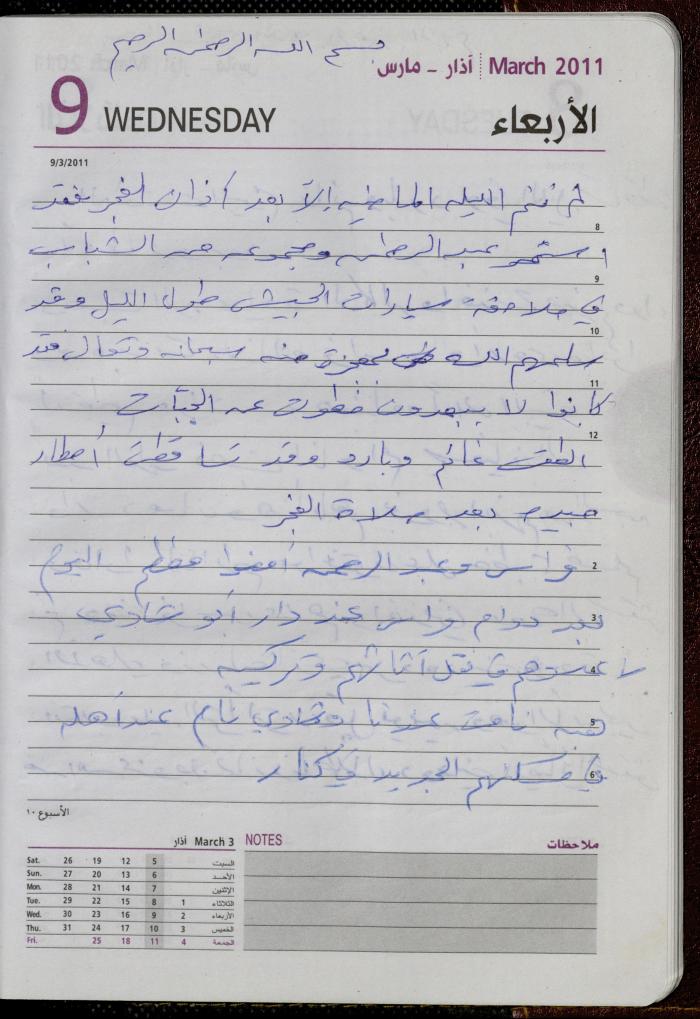 بسم الله الرحمن الرحيم
آذار - مارس March 2011
9 WEDNESDAY الأربعاء
9/3/2011
لم ننم الليله الماضيه إلا بعد أذان الفجر فقد
8
استمر عبد الرحمن ومجموعه من الشباب
9
في ملاحقة سيارات الجيش طول الليل وقد
10
سلمهم الله بمعجزة منه سبحانه وتعالى فقد
11
كانوا لا يبعدون خطوات عن الجيبات
12
الطقس غائم وبارد وقد تساقطت أمطار
بعد صلاة الفجر
فراس وعبد الرحمن أمضوا معظم اليوم
2
بعد دوام فراس عند دار أبو شادي
3
ساعدوهم في نقل أثاثهم وتركيبه
4
هبه نامت عندنا وشادي نام عند أهله
5
في مسكنهم الجديد في كنار
6
الأسبوع ١٠
March 3 آذار
Sat. 26 19 12 5 السبت
Sun. 27 20 13 6 الأحد
Mon. 28 21 14 7 الإثنين
Tue. 29 22 15 8 1 الثلاثاء
Wed. 30 23 16 9 2 الأربعاء
Thu. 31 24 17 10 3 الخميس
Fri. 25 18 11 4 الجمعة
NOTES ملاحظات